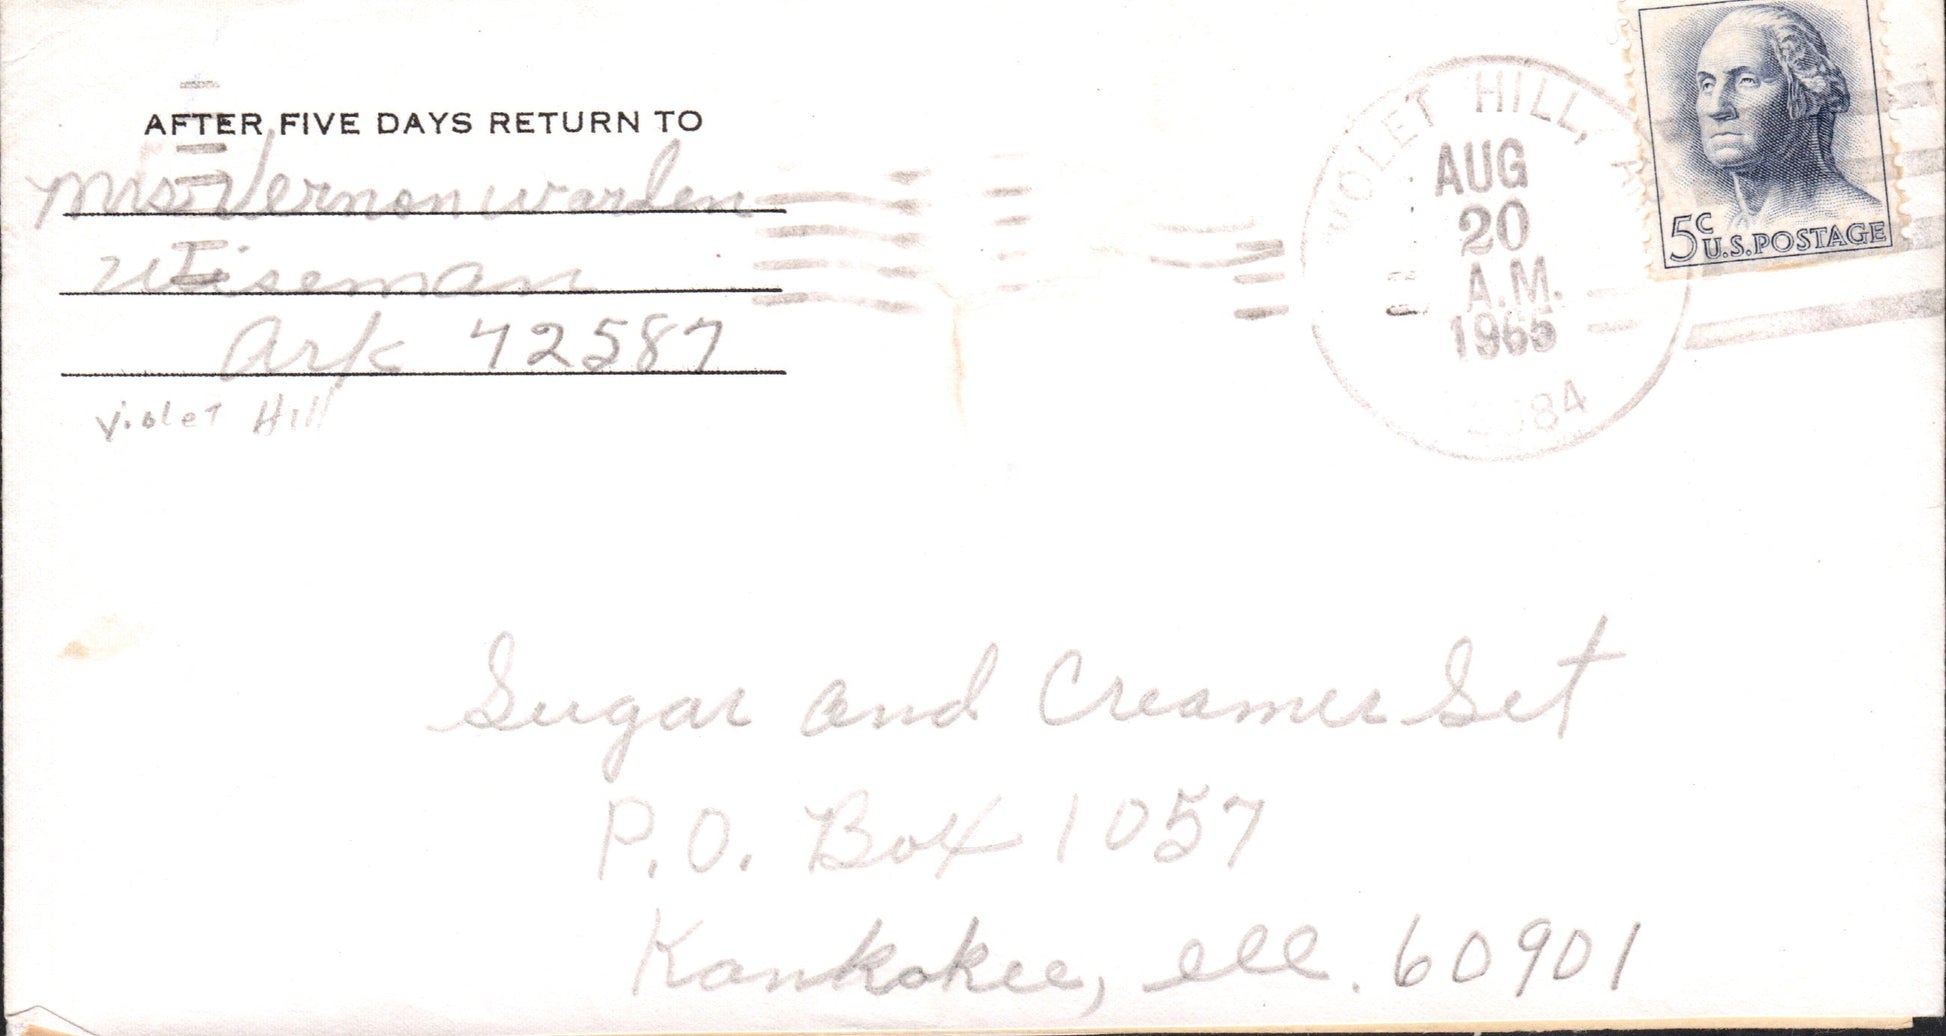 AFTER FIVE DAYS RETURN TO
Mrs. Vernon Warden
Wiseman
Ark 72587
Violet Hill
VIOLET HILL,
AUG
20
A.M.
1965
5c U.S. POSTAGE
Sugar and Creamer Set
P.O. Box 1057
Kankakee, Ill. 60901